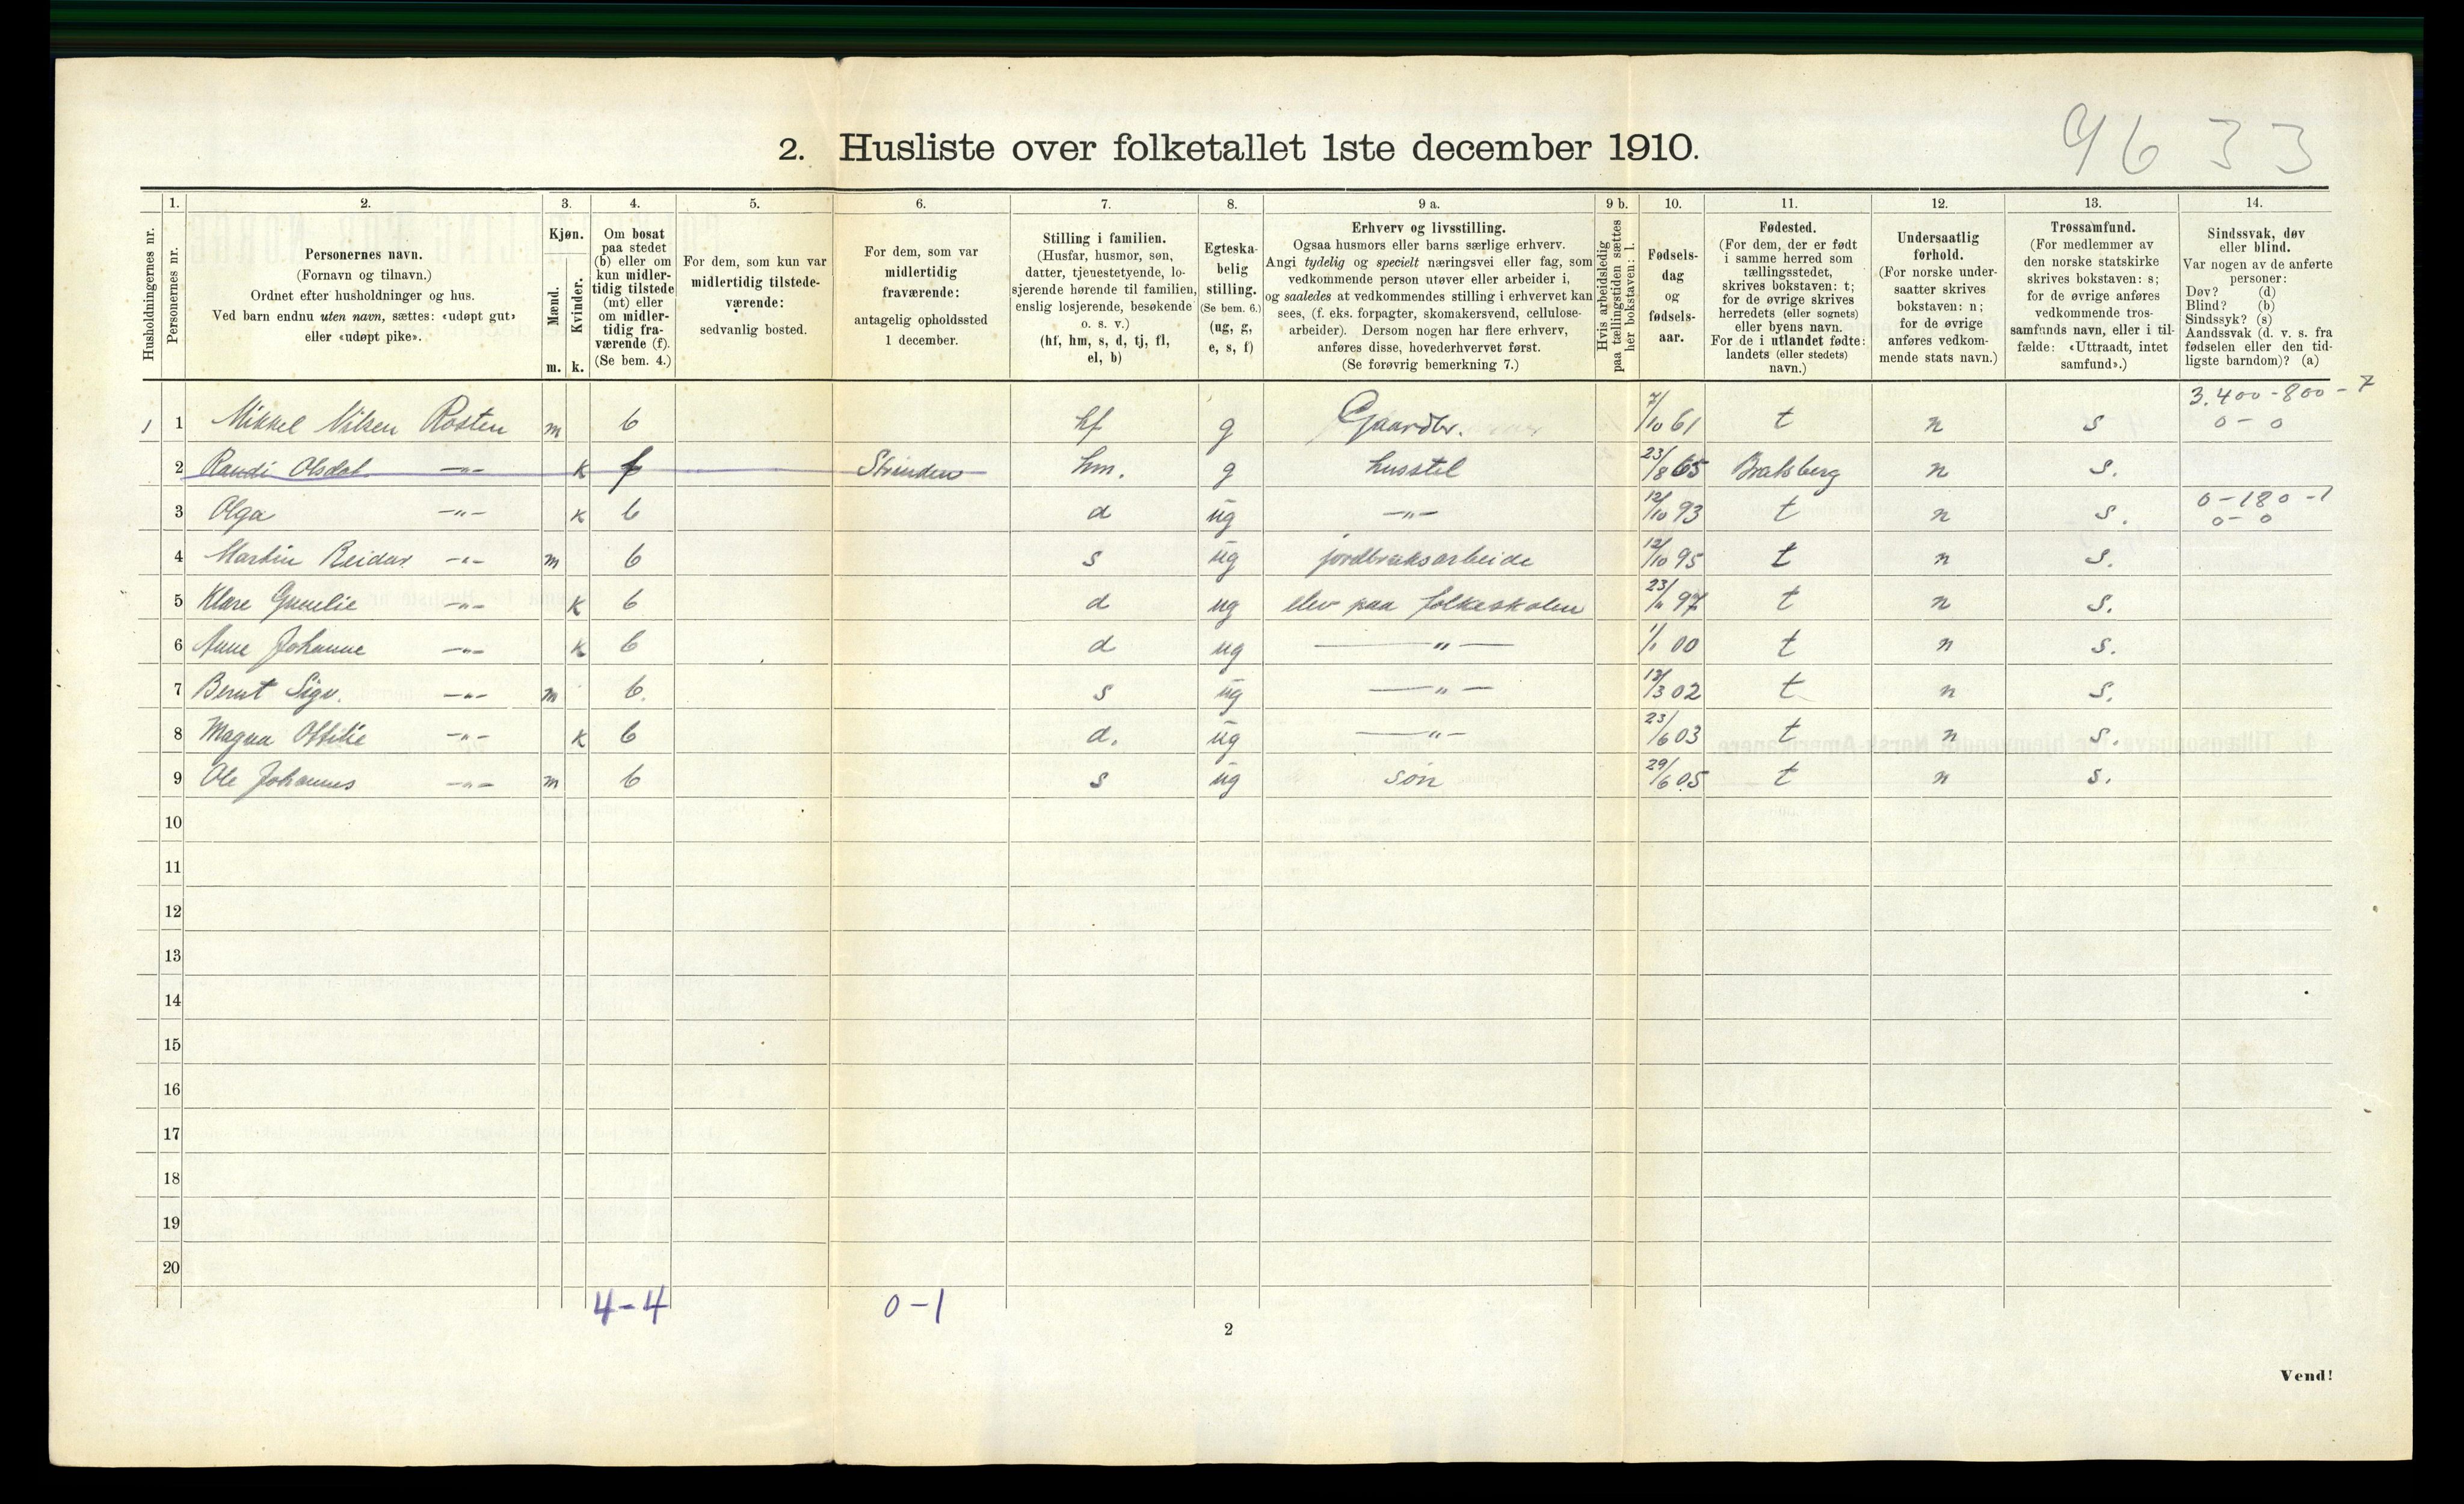 9633
2. Husliste over folketallet 1ste december 1910.
Husholdningernes nr.
1.
Personernes nr.
2.
Personernes navn.
(Fornavn og tilnavn.)
Ordnet efter husholdninger og hus.
Ved barn endnu uten navn, sættes: «udøpt gut»
eller «udøpt pike».
3.
Kjøn.
Mænd.
Kvinder.
m. k.
4.
Om bosat
paa stedet
(b) eller om
kun midler-
tidig tilstede
(mt) eller
om midler-
tidig fra-
værende (f).
(Se bem. 4.)
5.
For dem, som kun var
midlertidig tilstede-
værende:
sedvanlig bosted.
6.
For dem, som var
midlertidig
fraværende:
antagelig opholdssted
1 december.
7.
Stilling i familien.
(Husfar, husmor, søn,
datter, tjenestetyende, lo-
sjerende hørende til familien,
enslig losjerende, besøkende
o. s. v.)
(hf, hm, s, d, tj, fl,
el, b)
8.
Egteska-
belig
stilling.
(Se bem. 6.)
(ug, g,
e, s, f)
9 a.
Erhverv og livsstilling.
Ogsaa husmors eller barns særlige erhverv.
Angi tydelig og specielt næringsvei eller fag, som
vedkommende person utøver eller arbeider i,
og saaledes at vedkommendes stilling i erhvervet kan
sees, (f. eks. forpagter, skomakersvend, cellulose-
arbeider). Dersom nogen har flere erhverv,
anføres disse, hovederhvervet først.
(Se forøvrig bemerkning 7.)
9 b.
Hvis arbeidsledig
paa tællingstiden sættes
her bokstaven: l.
10.
Fødsels-
dag
og
fødsels-
aar.
11.
Fødested.
(For dem, der er født
i samme herred som
tællingsstedet,
skrives bokstaven: t;
for de øvrige skrives
herredets (eller sognets)
eller byens navn.
For de i utlandet fødte:
landets (eller stedets)
navn.)
12.
Undersaatlig
forhold.
(For norske under-
saatter skrives
bokstaven: n;
for de øvrige
anføres vedkom-
mende stats navn.)
13.
Trossamfund.
(For medlemmer av
den norske statskirke
skrives bokstaven: s;
for de øvrige anføres
vedkommende tros-
samfunds navn, eller i til-
fælde: «Uttraadt, intet
samfund».)
14.
Sindssvak, døv
eller blind.
Var nogen av de anførte
personer:
Døv? (d)
Blind? (b)
Sindssyk? (s)
Aandssvak (d. v. s. fra
fødselen eller den tid-
ligste barndom)? (a)
3.400-800-7
1 1 Mikkel Nilsen Rosten m b hf g Gaardbr. 7/10 61 t n s 0-0
2 Randi Olsdat —"— k f Strinden hm. g husstel 23/8 65 Bratsberg n s.
3 Olga —"— k b d ug —"— 12/10 93 t n s. 0-180-1 0-0
4 Martin Reidar —"— m b s ug jordbruksarbeide 12/10 95 t n s.
5 Klare —"— k b d ug elev paa folkeskolen 23/11 97 t n s.
6 Anne Johanne —"— k b d ug —"— 1/1 00 t n s.
7 Bernt Sigv. —"— m b. s ug —"— 12/3 02 t n s.
8 Magna Ottilie —"— k b d. ug —"— 23/6 03 t n s.
9 Ole Johannes —"— m b s ug søn 29/6 05 t n s.
10
11
12
13
14
15
16
17
18
19
20
4-4 0-1
2
Vend!